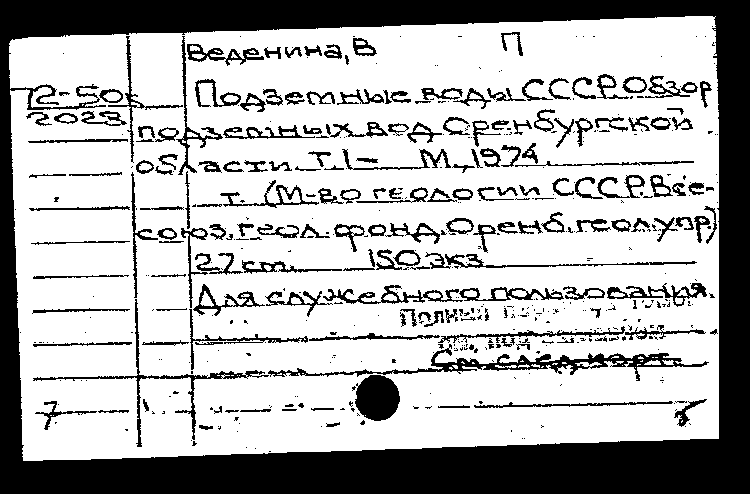 Веденина, В П
72-50к Подземные воды СССР. Обзор
2028 подземных вод Оренбургской
области. Т. 1 – М., 1974.
т. (М-во геологии СССР. Все-
союз. геол. фонд. Оренб. геол. упр.)
27 cm. 150 экз
Для служебного пользования.
Полный
см. под
См. след. карт.
7